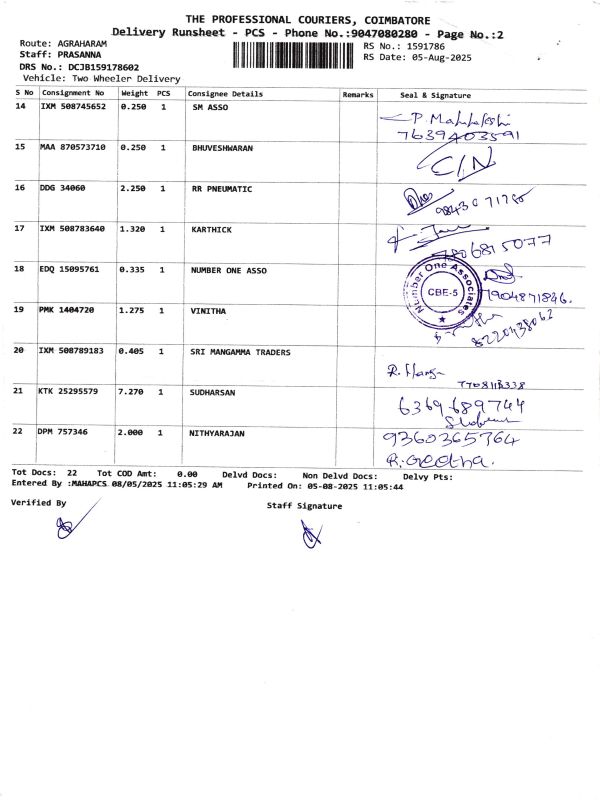 THE PROFESSIONAL COURIERS, COIMBATORE
Delivery Runsheet - PCS - Phone No.:9047080280 - Page No.:2
Route: AGRAHARAM RS No.: 1591786
Staff: PRASANNA RS Date: 05-Aug-2025
DRS No.: DCJB159178602
Vehicle: Two Wheeler Delivery
S No Consignment No Weight PCS Consignee Details Remarks Seal & Signature
14 IXM 508745652 0.250 1 SM ASSO
7639403591
15 MAA 870573710 0.250 1 BHUVESHWARAN C/N
16 DDG 34060 2.250 1 RR PNEUMATIC
17 IXM 508783640 1.320 1 KARTHICK
18 EDQ 15095761 0.335 1 NUMBER ONE ASSO Number One Associates CBE-5
7904871846.
19 PMK 1404720 1.275 1 VINITHA
8220438062
20 IXM 508789183 0.405 1 SRI MANGAMMA TRADERS
21 KTK 25295579 7.270 1 SUDHARSAN 6369689744
22 DPM 757346 2.000 1 NITHYARAJAN 9360365764
R.Geetha.
Tot Docs: 22 Tot COD Amt: 0.00 Delvd Docs: Non Delvd Docs: Delvy Pts:
Entered By :MAHAPCS 08/05/2025 11:05:29 AM Printed On: 05-08-2025 11:05:44
Verified By Staff Signature